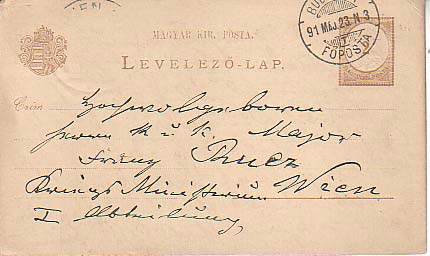 MAGYAR KIR. POSTA.
LEVELEZŐ-LAP.
BUD
91 MÁJ. 23. N. 3
FŐPOSTA
Czim
Hochwolgeboren
Herrn k u k. Major
Franz
Kriegs Ministerium Wien
I Abteilung